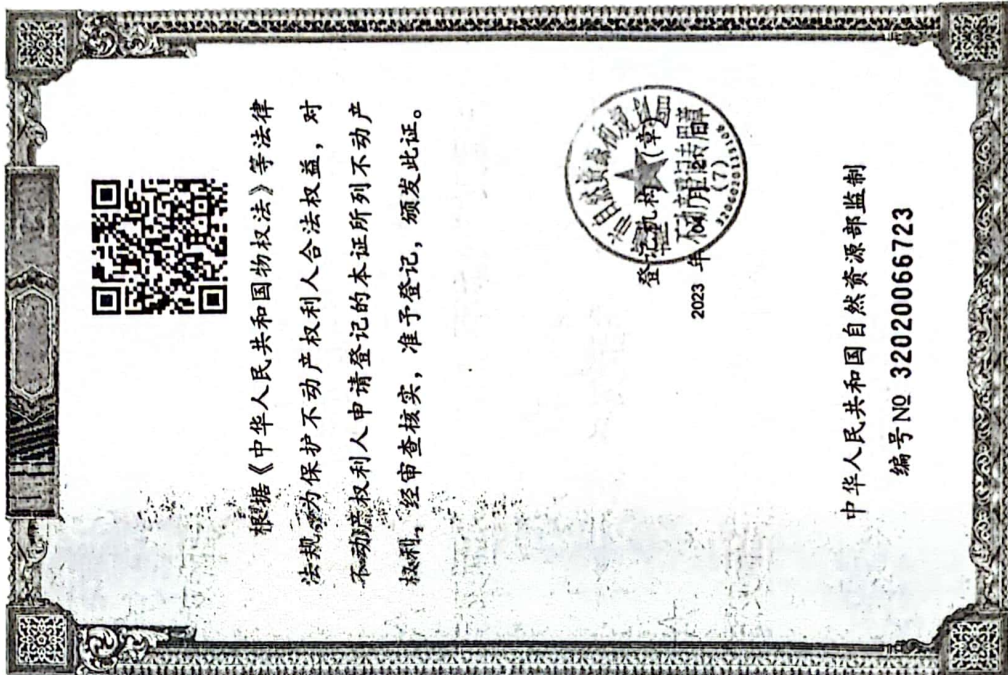 根据《中华人民共和国物权法》等法律
法规，为保护不动产权利人合法权益，对
不动产权利人申请登记的本证所列不动产
权利，经审查核实，准予登记，颁发此证。
登记机构（章）
2023 年 月 日
不动产登记专用章
(7)
中华人民共和国自然资源部监制
编号№ 32020066723